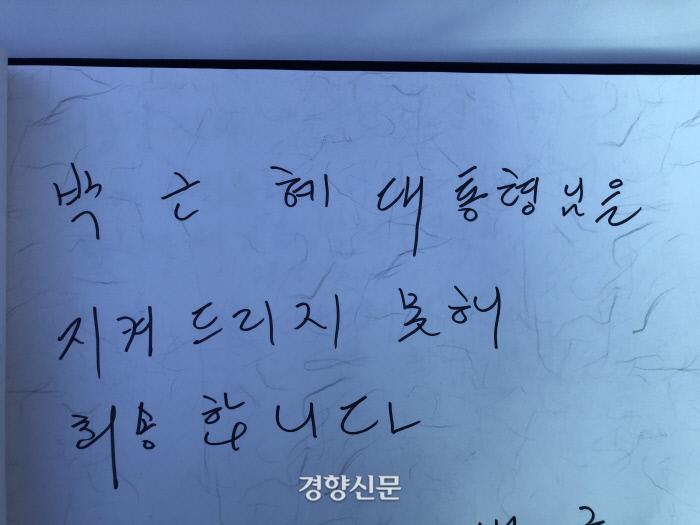 박근혜 대통형님을
지켜드리지 못해
죄송합니다
경향신문